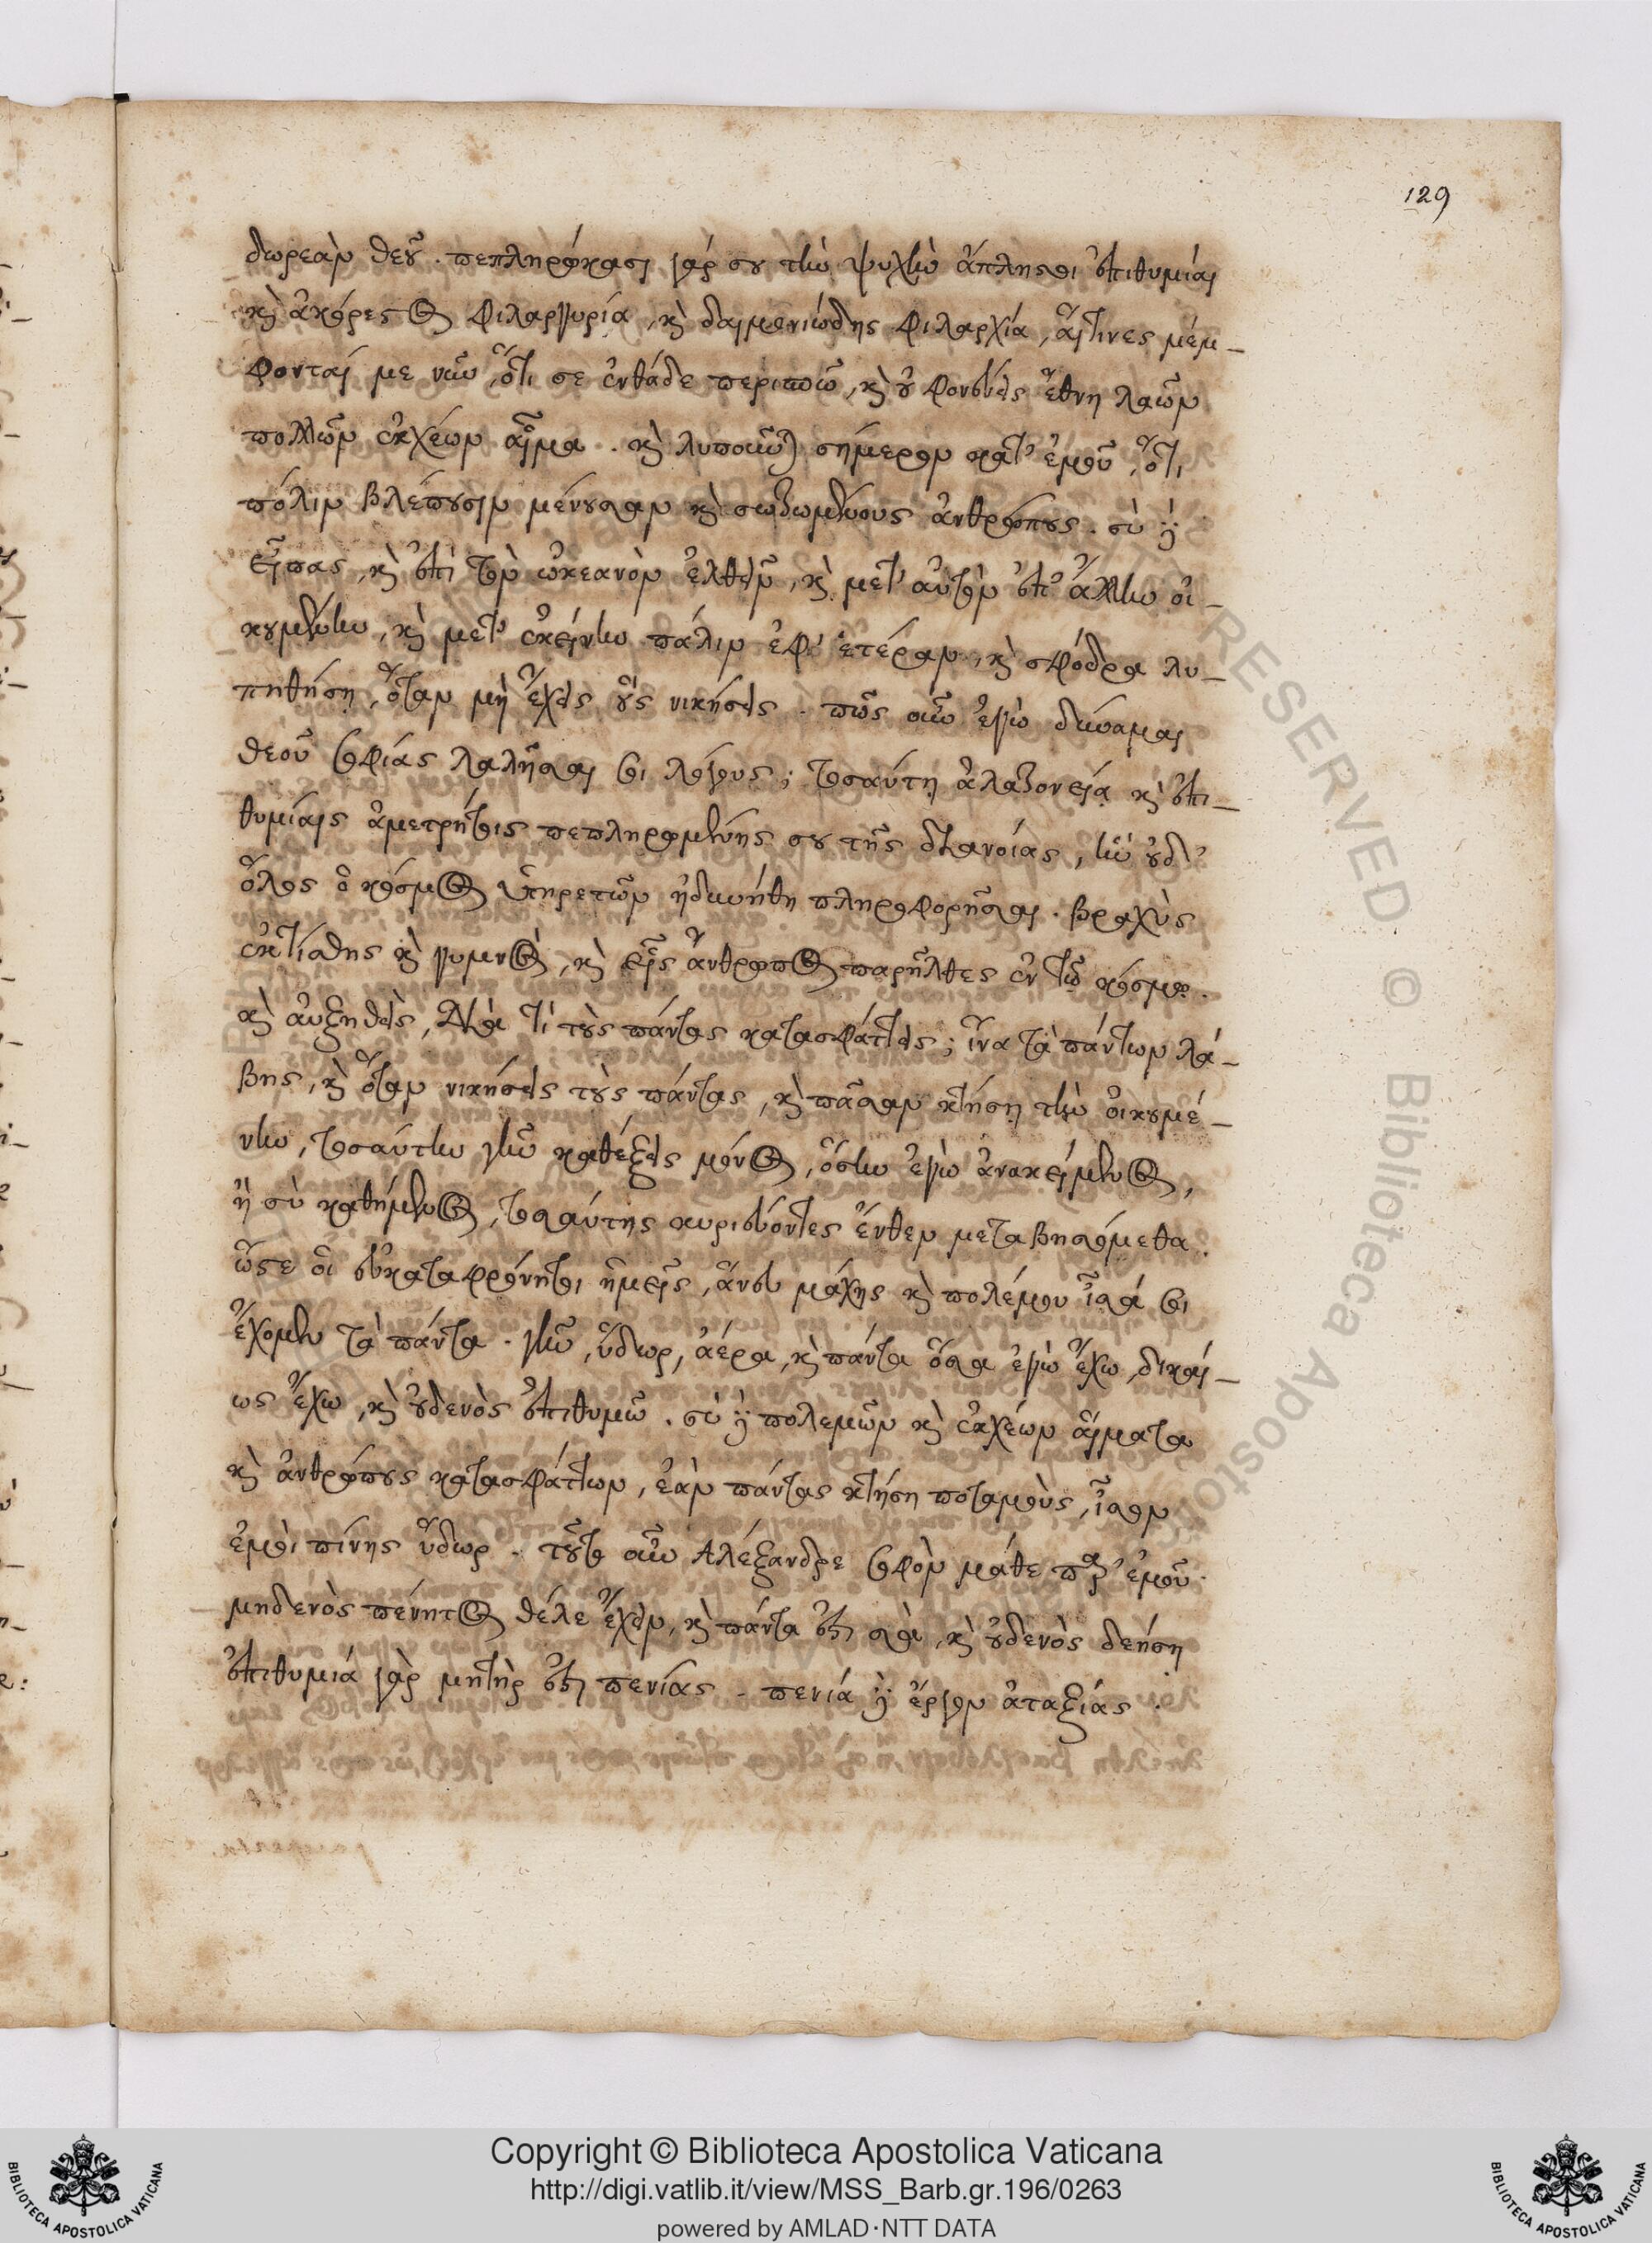 129
δωρεὰν θεοῦ. πεπληρώκασι γάρ σου τὴν ψυχὴν ἄπλησοι ἐπιθυμίαι
καὶ ἀκόρεστος φιλαργυρία, καὶ δαιμονιώδης φιλαρχία, αἵτινες μέμ–
φονταί με νῦν, ὅτι σε ἐνθάδε περισπῶ, καὶ οὐ φονεύεις ἔθνη λαῶν
πολλῶν ἐκχέων αἷμα. καὶ λυποῦνται σήμερον κατ' ἐμοῦ, ὅτι
πόλιν βλέπουσιν μένουσαν καὶ σωζωμένους ἀνθρώπους. σὺ δὲ
εἶπας, καὶ ἐπὶ τὸν ὠκεανὸν ἐλθεῖν, καὶ μετ' αὐτὸν ἐπ' ἄλλην οἰ–
κουμένην, καὶ μετ' ἐκείνην πάλιν ἐφ' ἑτέραν, καὶ σφόδρα λυ–
πηθήσῃ, ὅταν μὴ ἔχεις οὓς νικήσεις. πῶς οὖν ἐγὼ δύναμαι
θεοῦ σοφίας λαλῆσαι σοι λόγους; τοσαύτῃ ἀλαζονείᾳ καὶ ἐπι–
θυμίαις ἀμετρήτοις πεπληρωμένης σου τῆς διανοίας, ἣν οὐδ'
ὅλος ὁ κόσμος ὑπηρετῶν ἠδυνήθη πληροφορῆσαι. βραχὺς
ἐκτίσθης καὶ γυμνὸς, καὶ εἷς ἄνθρωπος παρῆλθες ἐν τῷ κόσμῳ.
καὶ αὐξηθεὶς, διὰ τί τοὺς πάντας κατασφάττεις; ἵνα τὰ πάντων λά–
βῃς, καὶ ὅταν νικήσεις τοὺς πάντας, καὶ πᾶσαν κτήσῃ τὴν οἰκουμέ–
νην, τοσαύτην γῆν καθέξεις μόνος, ὅσην ἐγὼ ἀνακείμενος,
ἢ σὺ καθήμενος, τοσαύτης κυριεύοντες ἔνθεν μεταβησόμεθα.
ὥστε οἱ εὐκαταφρόνητοι ἡμεῖς, ἄνευ μάχης καὶ πολέμου ἶσά σοι
ἔχομεν τὰ πάντα. γῆν, ὕδωρ, ἀέρα, καὶ πάντα ὅσα ἐγὼ ἔχω, δικαί–
ως ἔχω, καὶ οὐδενὸς ἐπιθυμῶ. σὺ δὲ πολεμῶν καὶ ἐκχέων αἵματα
καὶ ἀνθρώπους κατασφάττων, ἐὰν πάντας κτήσῃ ποταμοὺς, ἶσον
ἐμοὶ πίνῃς ὕδωρ. τοῦτο οὖν Ἀλέξανδρε σοφὸν μάθε παρ' ἐμοῦ.
μηδενὸς πένητος θέλε ἔχειν, καὶ πάντα ἐστὶ σὰ, καὶ οὐδενὸς δεήσῃ
ἐπιθυμιά γὰρ μητὴρ ἐστὶ πενίας. πενία δὲ ἔργον ἀταξίας.
RESERVED © Biblioteca Apostolica
Copyright © Biblioteca Apostolica Vaticana
http://digi.vatlib.it/view/MSS_Barb.gr.196/0263
powered by AMLAD·NTT DATA
BIBLIOTECA APOSTOLICA VATICANA
BIBLIOTECA APOSTOLICA VATICANA